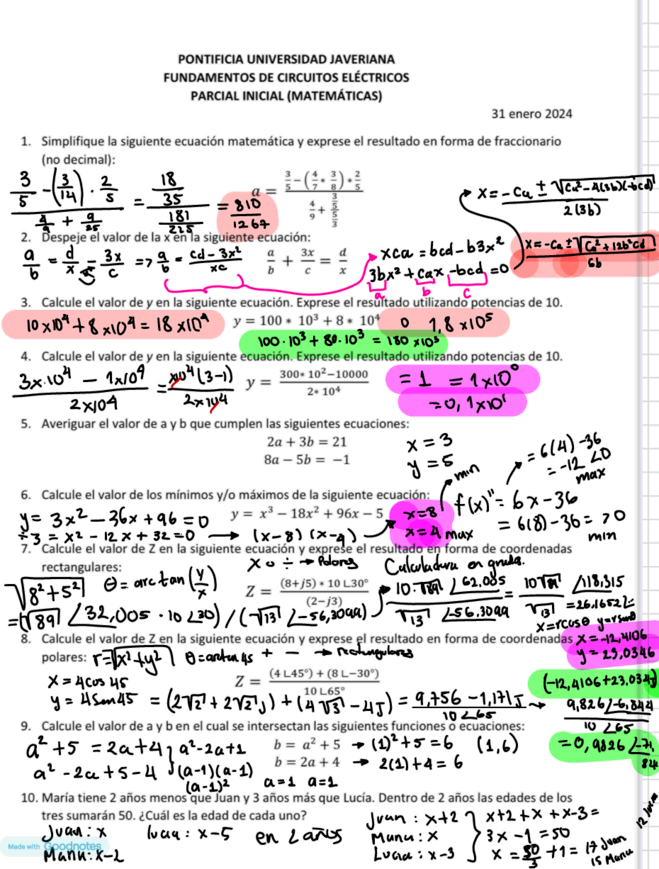 PONTIFICIA UNIVERSIDAD JAVERIANA
FUNDAMENTOS DE CIRCUITOS ELÉCTRICOS
PARCIAL INICIAL (MATEMÁTICAS)
31 enero 2024
1. Simplifique la siguiente ecuación matemática y exprese el resultado en forma de fraccionario
(no decimal):
a = (3/5 − (4/7 * 3/8) * 2/5) / (4/9 + (3/5)/(5/3))
(3/5 − (3/14) · 2/5) / (4/9 + 9/25) = (18/35) / (181/225) = 810/1267
x = −ca ± √(ca² − 4(3b)(−bcd)) / 2(3b)
x = −ca ± √(ca² + 12b²cd) / 6b
2. Despeje el valor de la x en la siguiente ecuación:
a/b + 3x/c = d/x
a/b = d/x − 3x/c => a/b = cd − 3x²/xc
xca = bcd − b3x²
3bx² + cax − bcd = 0
a b c
3. Calcule el valor de y en la siguiente ecuación. Exprese el resultado utilizando potencias de 10.
10x10⁴ + 8x10⁴ = 18x10⁴ y = 100 * 10³ + 8 * 10⁴ o 1,8x10⁵
100·10³ + 80·10³ = 180x10³
4. Calcule el valor de y en la siguiente ecuación. Exprese el resultado utilizando potencias de 10.
3x10⁴ − 1x10⁴ / 2x10⁴ = x10⁴(3−1) / 2x10⁴ y = 300*10²−10000 / 2*10⁴ = 1 = 1x10⁰
= 0,1x10¹
5. Averiguar el valor de a y b que cumplen las siguientes ecuaciones:
2a + 3b = 21 x = 3
8a − 5b = −1 y = 5
min = 6(4) − 36
= −12 < 0
max
6. Calcule el valor de los mínimos y/o máximos de la siguiente ecuación:
y = 3x² − 36x + 96 = 0 y = x³ − 18x² + 96x − 5 x = 8 f(x)'' = 6x − 36
÷3 = x² − 12x + 32 = 0 → (x−8)(x−4) x = 4 max = 6(8) − 36 = > 0
min
7. Calcule el valor de Z en la siguiente ecuación y exprese el resultado en forma de coordenadas
rectangulares: x o ÷ → Polares Calculadora en grados.
√8²+5² θ = arctan(y/x) Z = (8+j5) * 10∟30° / (2−j3) 10·√89 ∠62,005 / √13 ∠−56,3099 = 10√89 / √13 ∠118,315
= (√89 ∠32,005 · 10∠30) / (√13 ∠−56,3099) = 26,1652∠
x = rcosθ y = rsenθ
8. Calcule el valor de Z en la siguiente ecuación y exprese el resultado en forma de coordenadas
polares: r = √x²+y² + − → rectangulares
x = −12,4106
y = 23,0346
(−12,4106 + 23,034j)
x = 4cos45 Z = (4∟45°) + (8∟−30°) / 10∟65°
y = 4Sen45 = (2√2 + 2√2j) + (4√3 − 4j) = 9,756 − 1,171j / 10∠65 → 9,826∠−6,844 / 10∠65
= 0,9826∠−71,84
9. Calcule el valor de a y b en el cual se intersectan las siguientes funciones o ecuaciones:
a² + 5 = 2a + 4 a² − 2a + 1 b = a² + 5 → (1)² + 5 = 6 (1,6)
a² − 2a + 5 − 4 (a−1)(a−1) b = 2a + 4 → 2(1) + 4 = 6
(a−1)² a=1 a=1
10. María tiene 2 años menos que Juan y 3 años más que Lucía. Dentro de 2 años las edades de los
tres sumarán 50. ¿Cuál es la edad de cada uno?
Juan: x Lucia: x−5 en 2 años
Maria: x−2
Juan: x+2 x+2 + x + x−3 =
Maria: x 3x − 1 = 50
Lucia: x−3 x = 50/3 + 1 = 17 Juan
15 Maria
12 Lucia
Made with Goodnotes